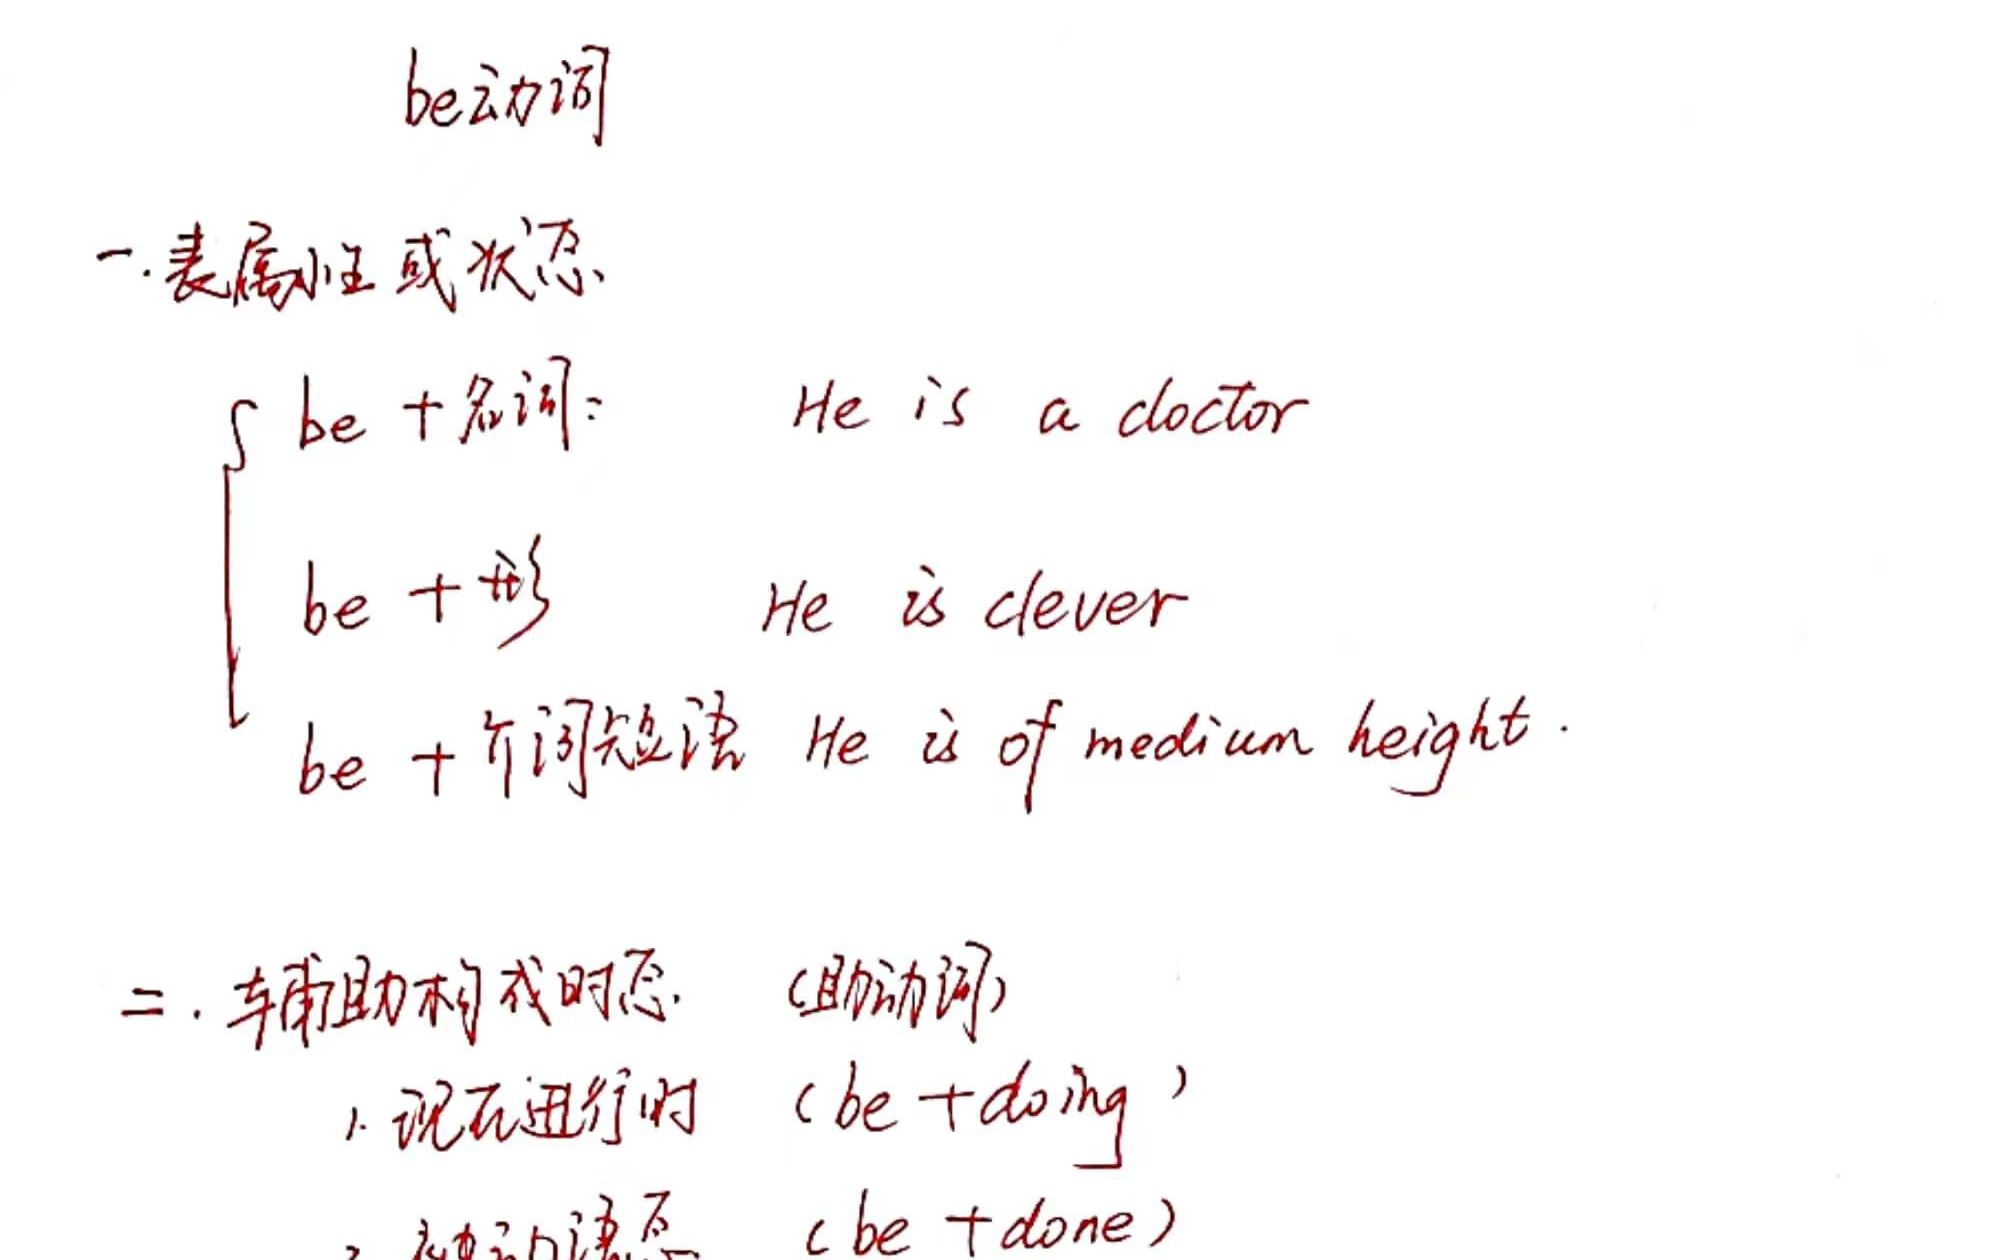 be动词
一.表属性或状态
be + 名词: He is a doctor
be + 形 He is clever
be + 介词短语 He is of medium height.
二.辅助构成时态. (助动词)
1.现在进行时 (be + doing)
2.被动语态 (be + done)